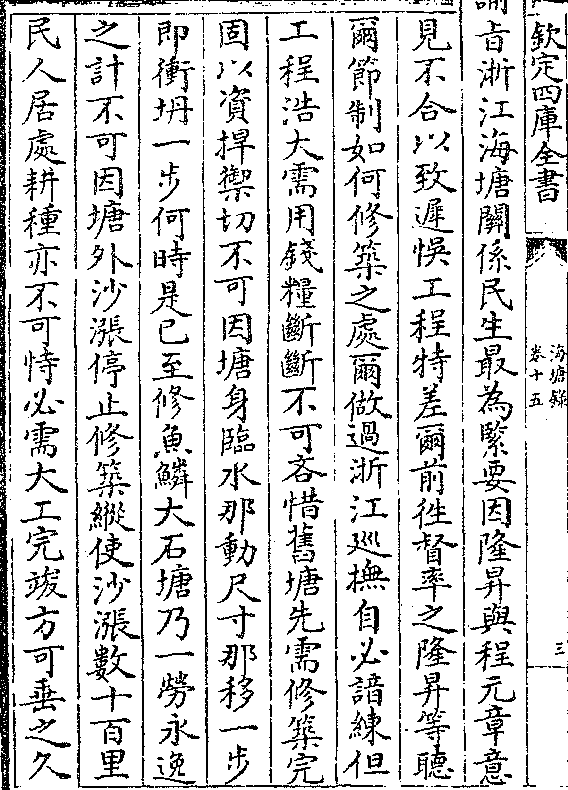 欽定四庫全書
海塘錄
卷十五
三
旨浙江海塘關係民生最為緊要因隆昇與程元章意
見不合以致遲悞工程特差爾前徃督率之隆昇等聽
爾節制如何修築之處爾做過浙江巡撫自必諳練但
工程浩大需用錢糧斷斷不可吝惜舊塘先需修築完
固以資捍禦切不可因塘身臨水那動尺寸那移一步
即衝坍一步何時是已至修魚鱗大石塘乃一勞永逸
之計不可因塘外沙漲停止修築縱使沙漲數十百里
民人居處耕種亦不可恃必需大工完竣方可垂之久